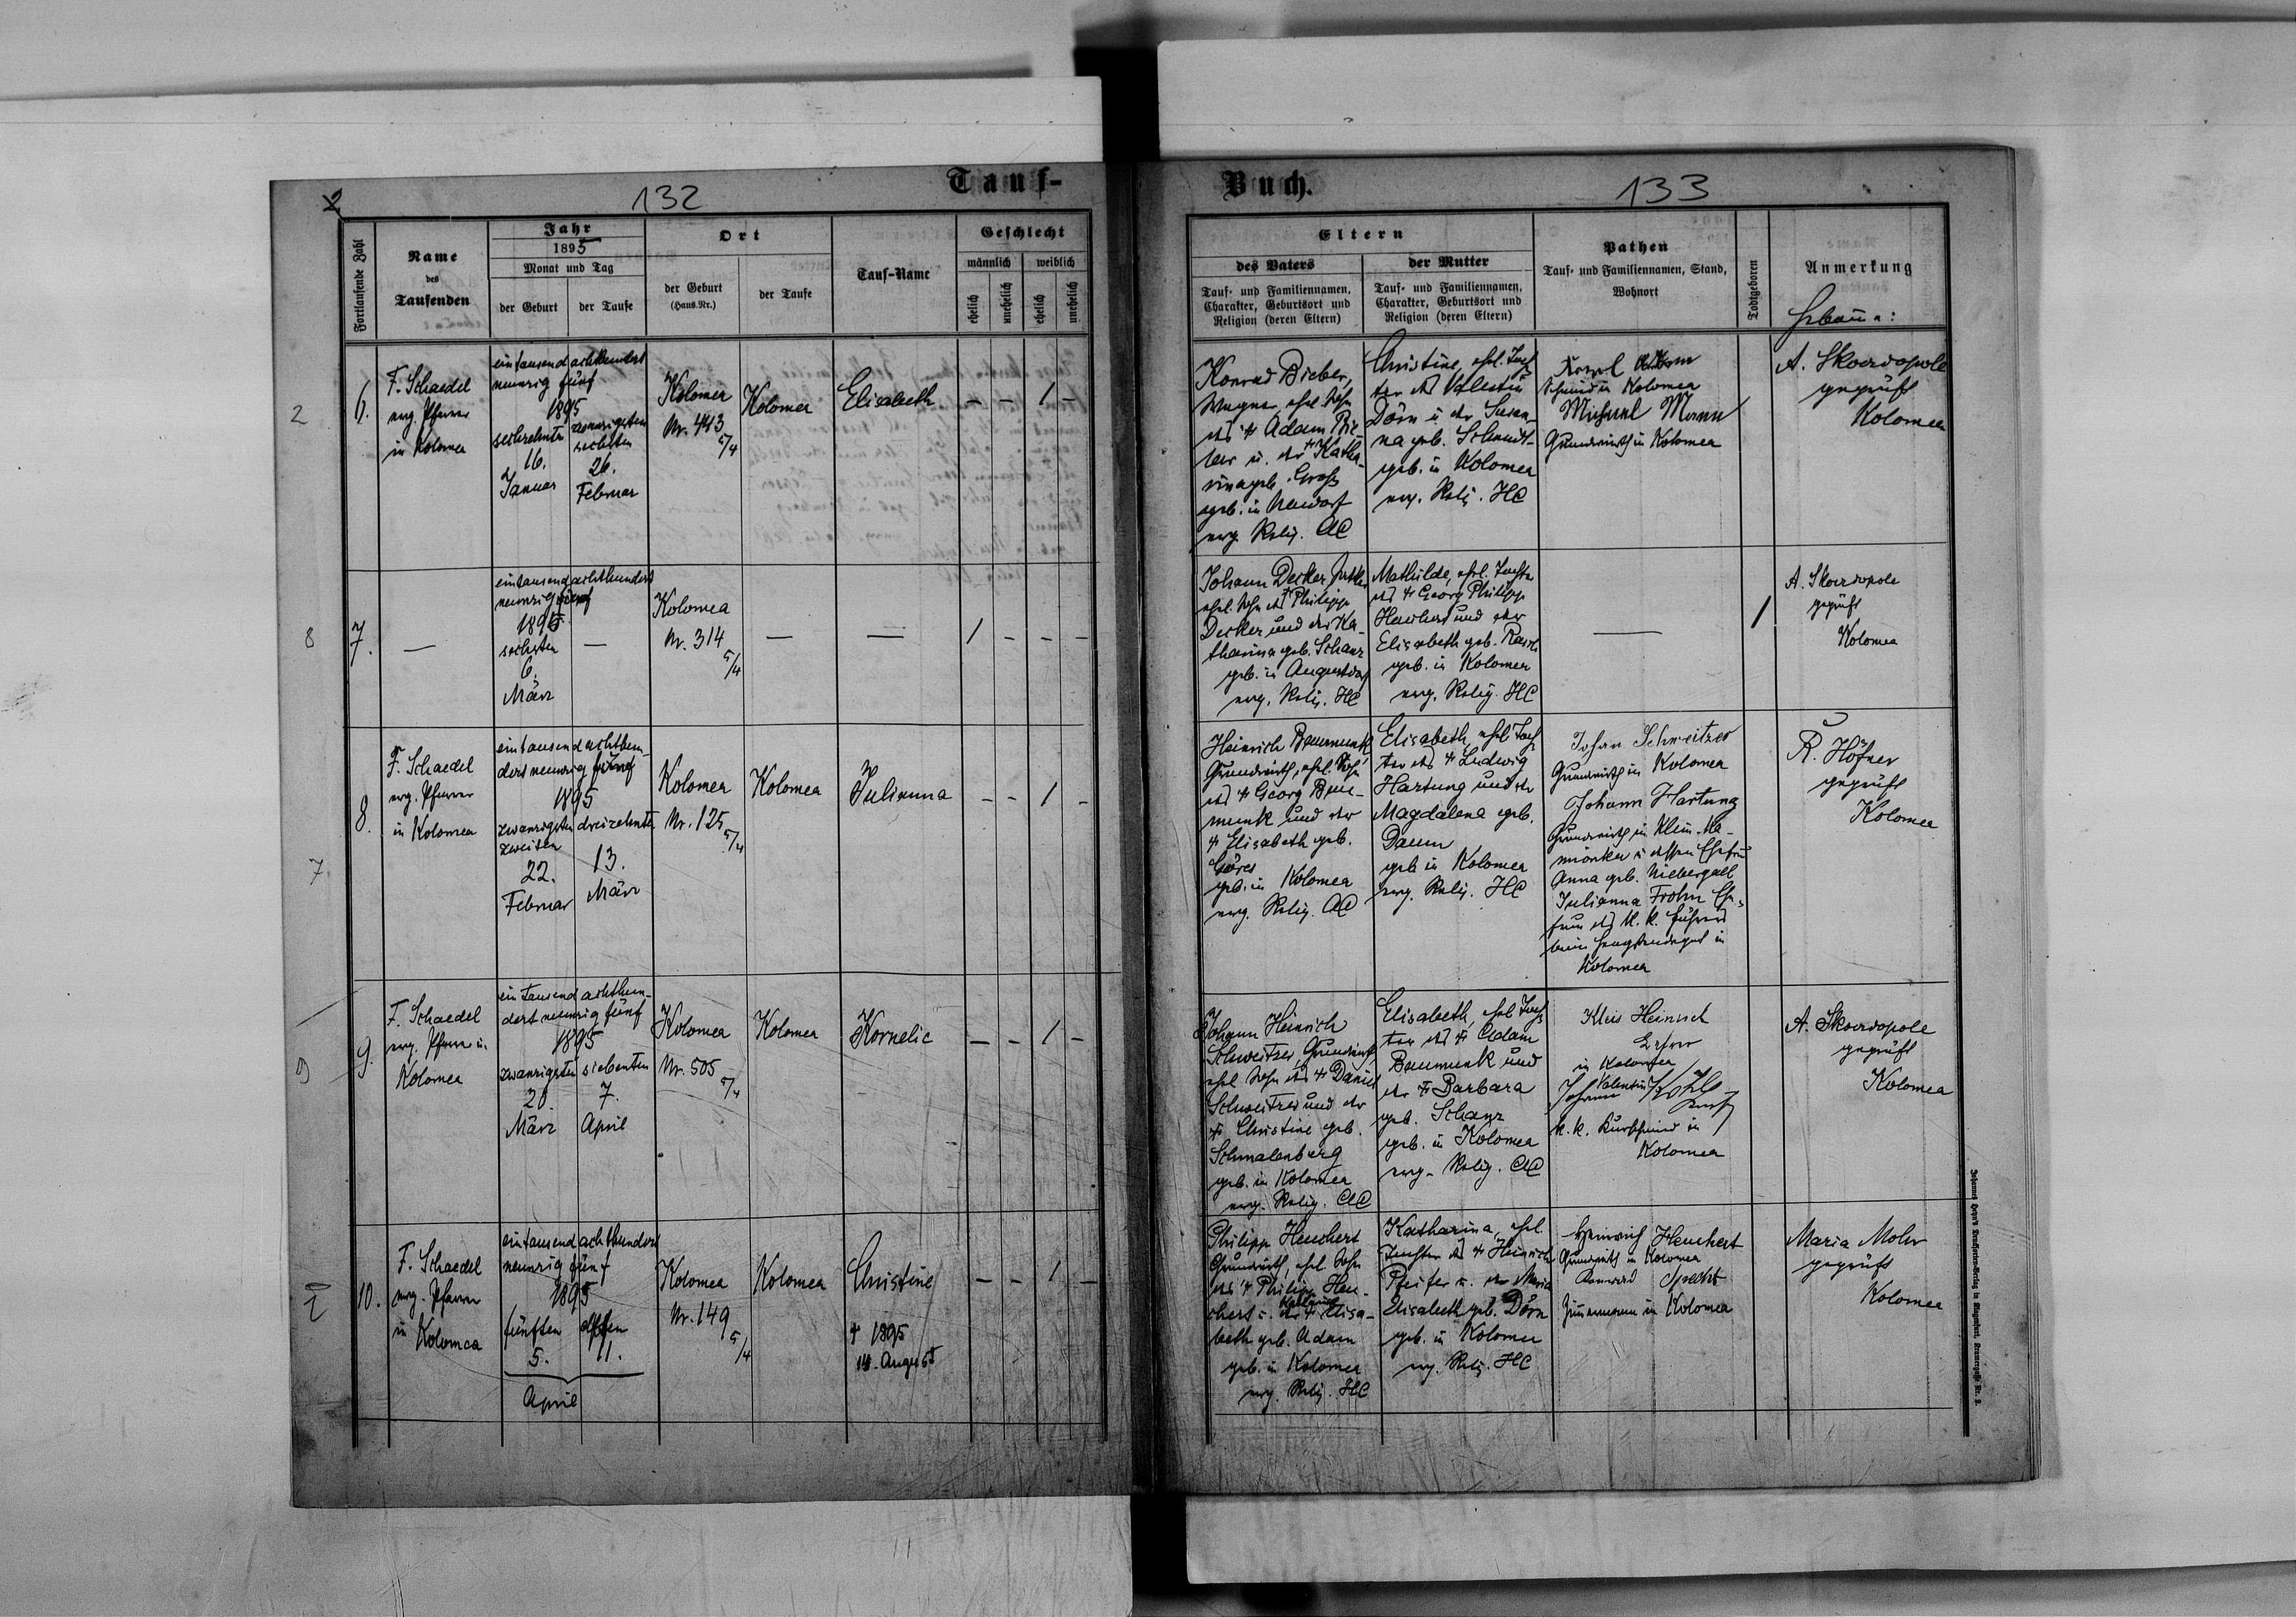 2
132
Tauf-
Fortlaufende Zahl
Name
des
Taufenden
Jahr
1895
Monat und Tag
der Geburt
der Taufe
Ort
der Geburt
(Haus-Nr.)
der Taufe
Tauf-Name
Geschlecht
männlich
weiblich
ehelich
unehelich
ehelich
unehelich
2
6.
F. Schaedel
evg. Pfarrer
in Kolomea
eintausend achthundert
neunzig fünf
1895
sechzehnte
16.
Januar
zwanzigsten
sechsten
26.
Februar
Kolomea
Nr. 443
5/4
Kolomea
Elisabeth
– – 1 –
8
7.
—
eintausend achthundert
neunzig fünf
1895
sechsten
6.
März
—
Kolomea
Nr. 314
5/4
—
—
1 – – –
7
8.
F. Schaedel
evg. Pfarrer
in Kolomea
eintausend achthun-
dert neunzig fünf
1895
zwanzigsten
zweiten
22.
Februar
dreizehnte
13.
März
Kolomea
Nr. 125
5/4
Kolomea
Julianna
– – 1 –
9
9.
F. Schaedel
evg. Pfarrer in
Kolomea
eintausend achthun-
dert neunzig fünf
1895
zwanzigsten
20.
März
siebenten
7.
April
Kolomea
Nr. 505
5/4
Kolomea
Kornelie
– – 1 –
10.
F. Schaedel
evg. Pfarrer
in
Kolomea
eintausend achthundert
neunzig fünf
1895
fünften
5.
elften
11.
April
Kolomea
Nr. 149
5/4
Kolomea
Christine
– – 1 –
† 1895
14. August
Buch.
133
Eltern
des Vaters
Tauf- und Familiennamen,
Charakter, Geburtsort und
Religion (deren Eltern)
der Mutter
Tauf- und Familiennamen,
Charakter, Geburtsort und
Religion (deren Eltern)
Pathen
Tauf- und Familiennamen, Stand,
Wohnort
Todtgeboren
Anmerkung
Hebame:
Konrad Bieber,
Wagner, ehel. Sohn
des † Adam Bie-
ber u. der † Katha-
rina geb. Groß
geb. in Neudorf
evg. Relig. AC
Christine, ehel. Toch-
ter des Valentin
Dörn u. der Susan-
na geb. Schmidt
geb. in Kolomea
evg. Relig. HC
Schmied in Kolomea
Michael Mann
Grundwirth in Kolomea
A. Skordopole
geprüft
Kolomea
Johann Decker,
ehel. Sohn des † Philipp
Decker und der Ka-
tharina geb. Schanz
geb. in Augustdorf
evg. Relig. HC
Mathilde, ehel. Tochter
des † Georg Philipp
Heuchert und der
Elisabeth geb.
geb. in Kolomea
evg. Relig. HC
—
1
A. Skordopole
geprüft
Kolomea
Heinrich Baumunk
Grundwirth, ehel. Sohn
des † Georg Bau-
munk und der
† Elisabeth geb.
Göres
geb. in Kolomea
evg. Relig. AC
Elisabeth, ehel. Toch-
ter des † Ludwig
Hartung und der
Magdalena geb.
Daum
geb. in Kolomea
evg. Relig. HC
Johan Schweitzer
Grundwirth in Kolomea
Johann Hartung
Grundwirth in Klein-Ka-
mionka u. dessen Ehefrau
Anna geb. Niebergall
Julianna Frohn Ehe-
frau des k. k. Führers
beim Hengstendepot in
Kolomea
R. Höfner
geprüft
Kolomea
Johann Heinrich
Schweitzer, Grundwirth
ehel. Sohn des † Daniel
Schweitzer und der
† Christine geb.
Schmalenberg
geb. in Kolomea
evg. Relig. AC
Elisabeth ehel. Toch-
ter des † Adam
Baumunk und
der † Barbara
geb. Schanz
geb. in Kolomea
evg. Relig. AC
Kleis Heinrich
Lehrer
in Kolomea
Johann Valentin
k. k. Kurschmied in
Kolomea
A. Skordopole
geprüft
Kolomea
Philipp Heuchert
Grundwirth, ehel. Sohn
des † Philipp Heu-
chert u. der † Elisa-
beth geb. Adam
geb. in Kolomea
evg. Relig. HC
Katharina, ehel.
Tochter des † Heinrich
Pfeifer u. der Maria
Elisabeth geb. Dörn
geb. in Kolomea
evg. Relig. HC
Heinrich Heuchert
Grundwirth in Kolomea
Konrad Specht
Zimmermann in Kolomea
Maria Mohr
geprüft
Kolomea